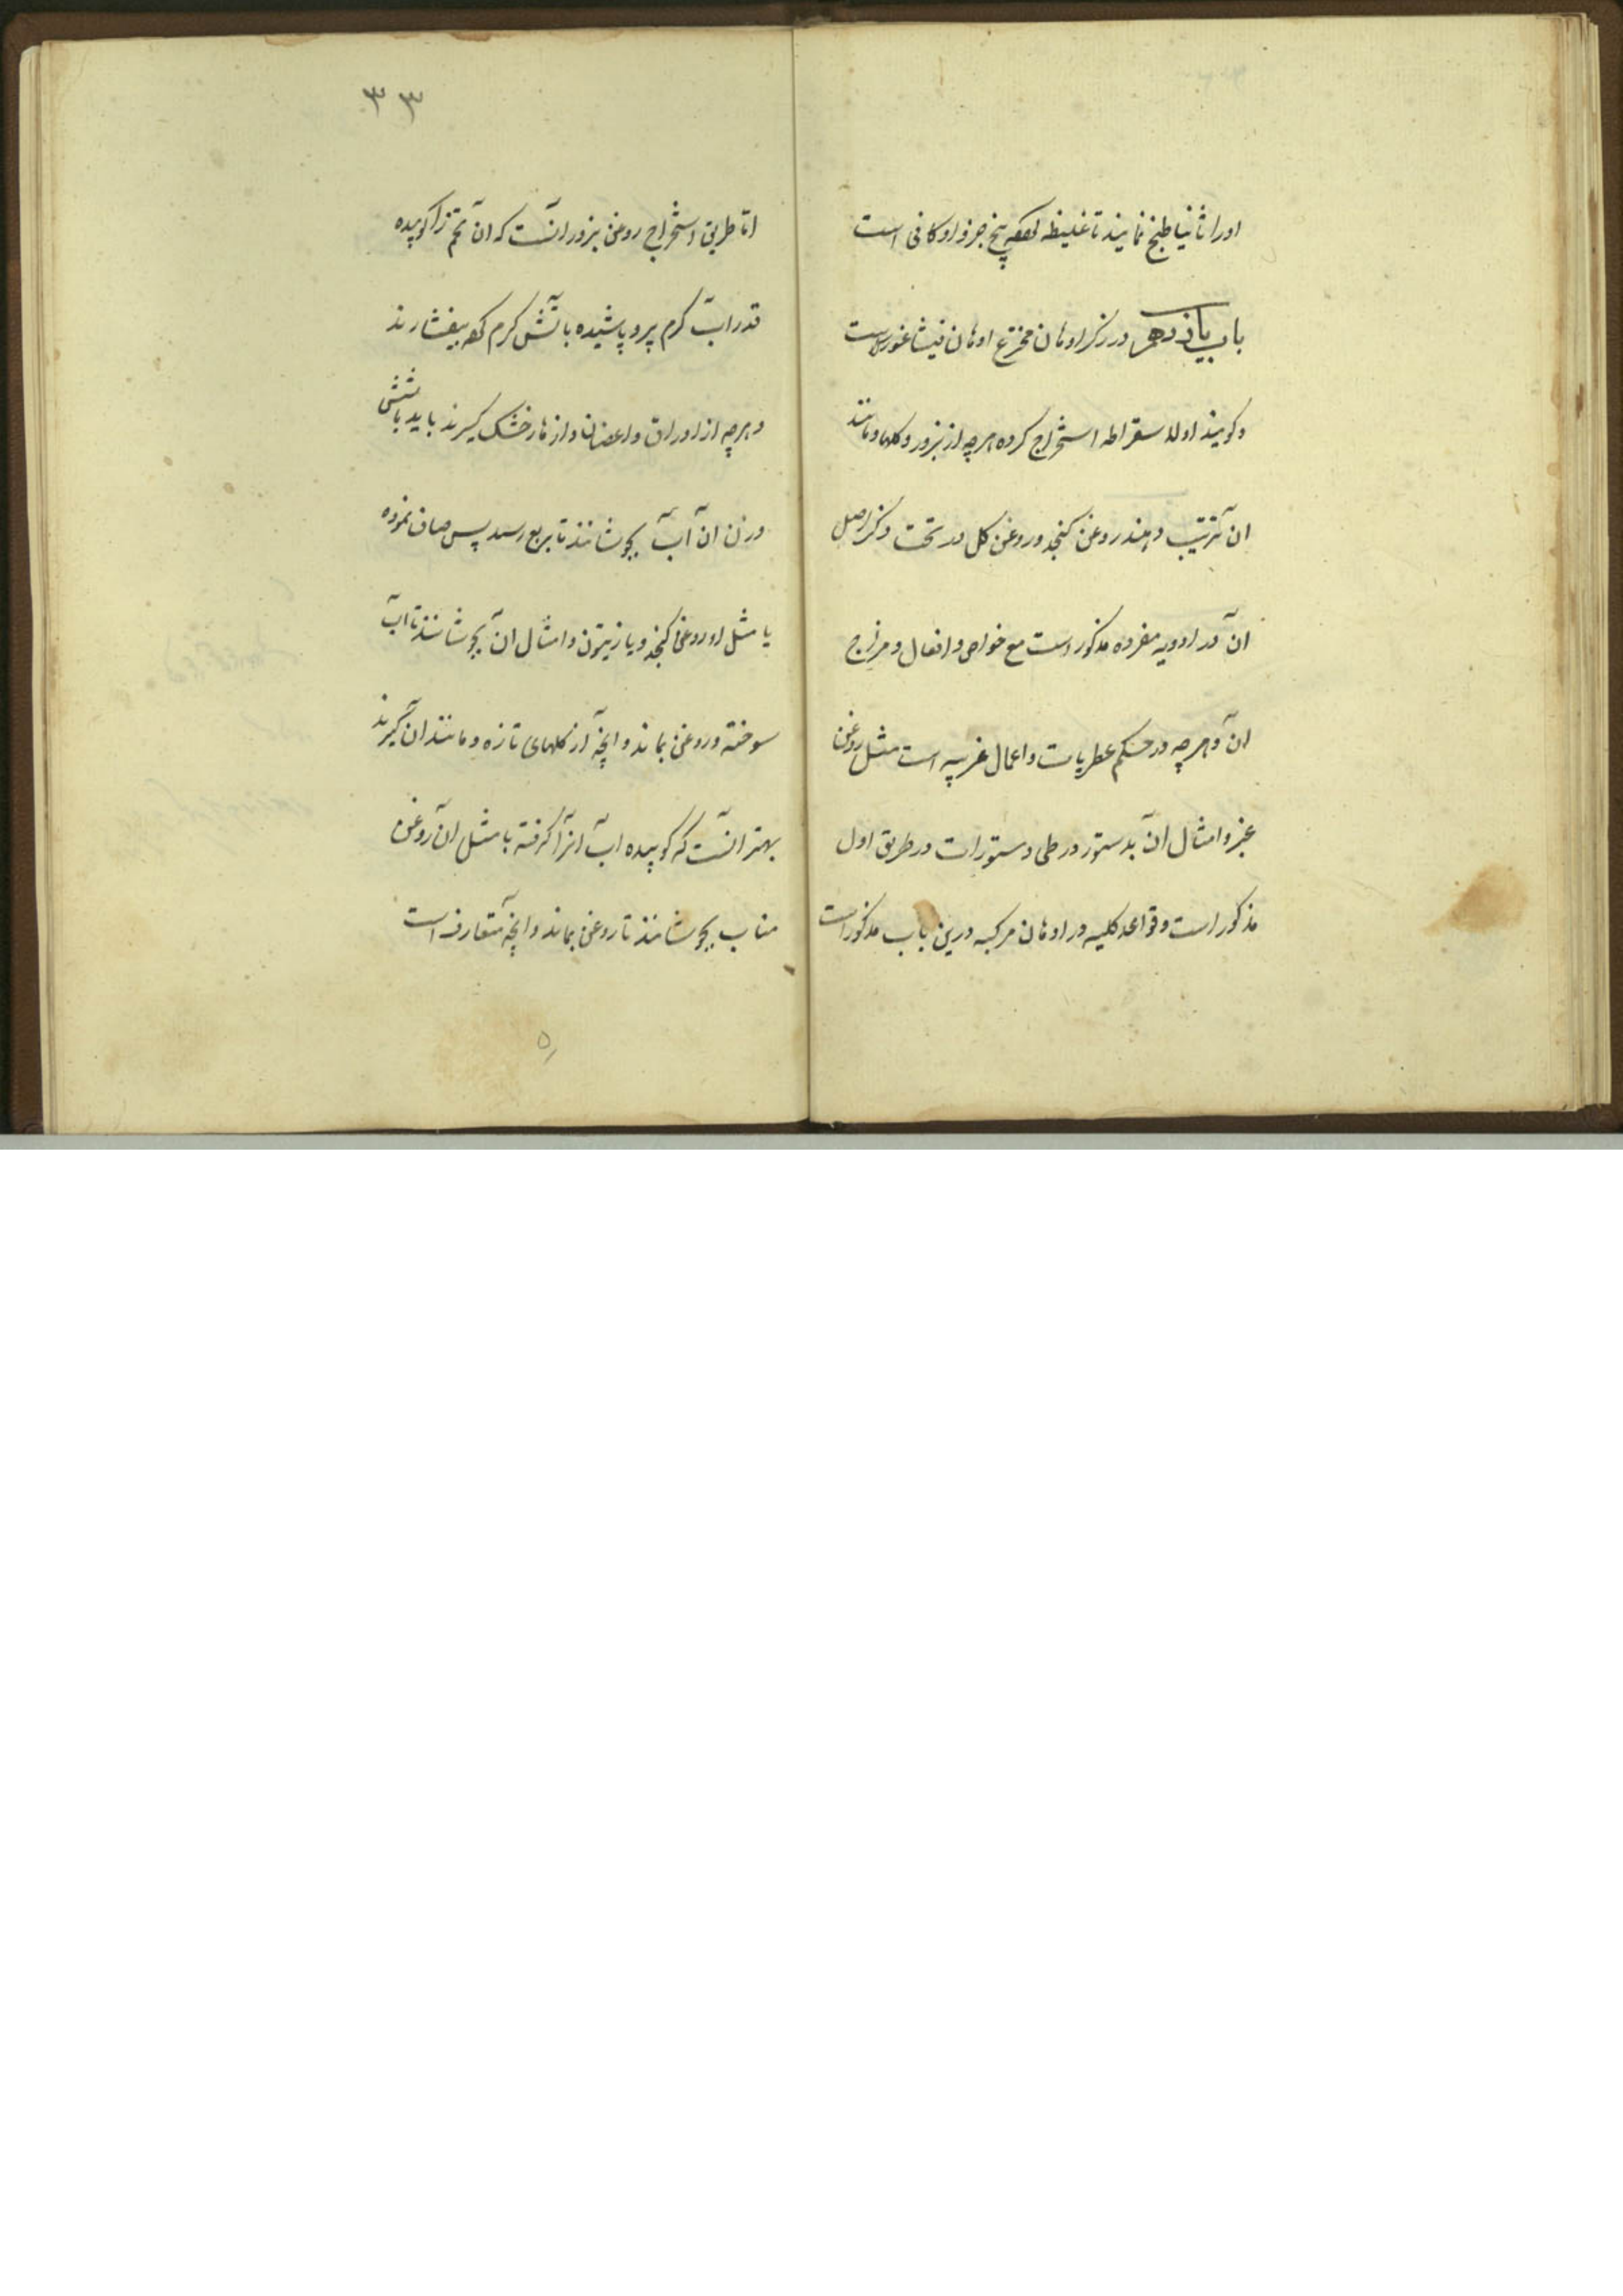 اورا ثانیا طبخ نمایند تا غلیظ پنج جزو او کافی است
باب یازدهم در ذکر ادهان مخترع ادهان فیثاغورث است
و گویند اولا سقراط استخراج کرده هرچه از بزور و گلها و مانند
ان ترتیب دهند روغن کنجد و روغن گل در تحت ذکر اصل
ان در ادویه مفرده مذکور است مع خواص و افعال و مزاج
ان و هرچه در حکم عطریات و اعمال غریبه است مثل روغن
عنبر و امثال ان بدستور در طی دستورات در طریق اول
مذکور است و قواعد کلیه در ادهان مرکبه درین باب مذکور است
۳۳
اما طریق استخراج روغن بزور انست که ان تخم را کوبیده
قدر اب گرم برو پاشیده باتش گرم بیفشارند
و هرچه از اوراق و اغصان و ازهار خشک گیرند باید با شش
وزن ان آب بجوشانند تا بربع رسد پس صاف نموده
با مثل او روغن کنجد و یا زیتون و امثال ان بجوشانند تا اب
سوخته و روغن بماند و انچه از گلهای تازه و مانند ان گیرند
بهتر انست که کوبیده اب انرا گرفته با مثل ان روغن
مناسب بجوشانند تا روغن بماند و انچه متعارف است